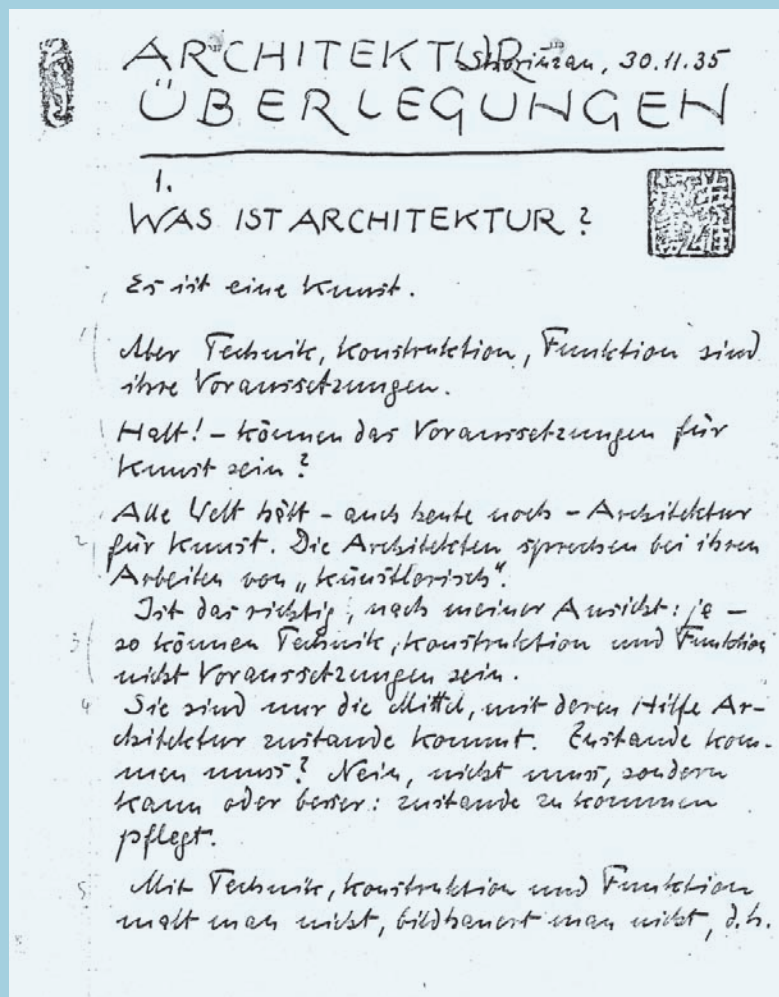 ARCHITEKTUR Shorinzan, 30.11.35
ÜBERLEGUNGEN
1.
WAS IST ARCHITEKTUR?
Es ist eine Kunst.
1
Aber Technik, Konstruktion, Funktion sind
ihre Voraussetzungen.
Halt! – können das Voraussetzungen für
Kunst sein?
Alle Welt hält – auch heute noch – Architektur
2 für Kunst. Die Architekten sprechen bei ihren
Arbeiten von „künstlerisch“.
Ist das richtig, nach meiner Ansicht: ja –
3 so können Technik, Konstruktion und Funktion
nicht Voraussetzungen sein.
4 Sie sind nur die Mittel, mit deren Hilfe Ar-
chitektur zustande kommt. Zustande kom-
men muss? Nein, nicht muss, sondern
kann oder besser: zustande zu kommen
pflegt.
5 Mit Technik, Konstruktion und Funktion
malt man nicht, bildhauert man nicht, d.h.